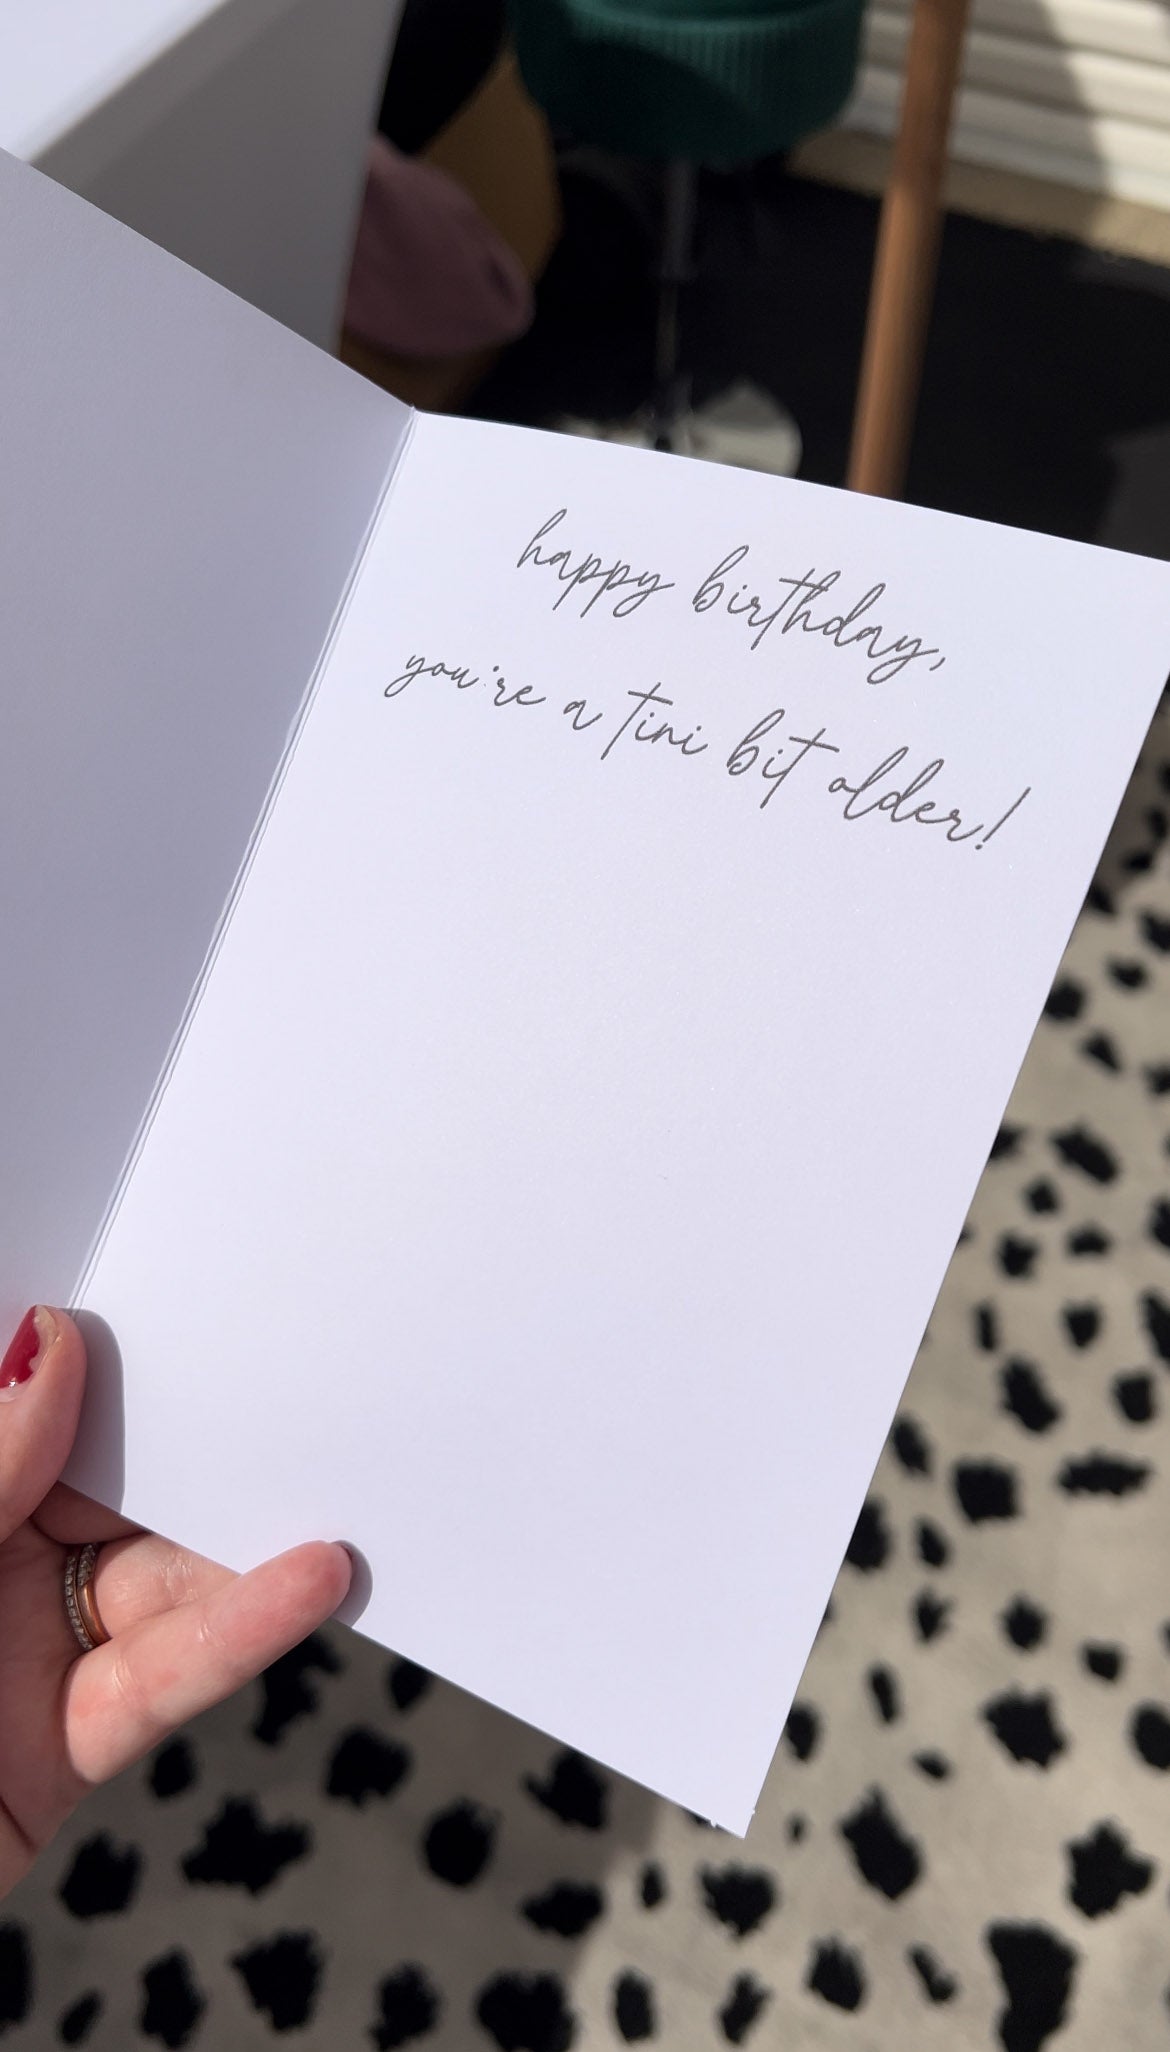 happy birthday,
you're a tini bit older!